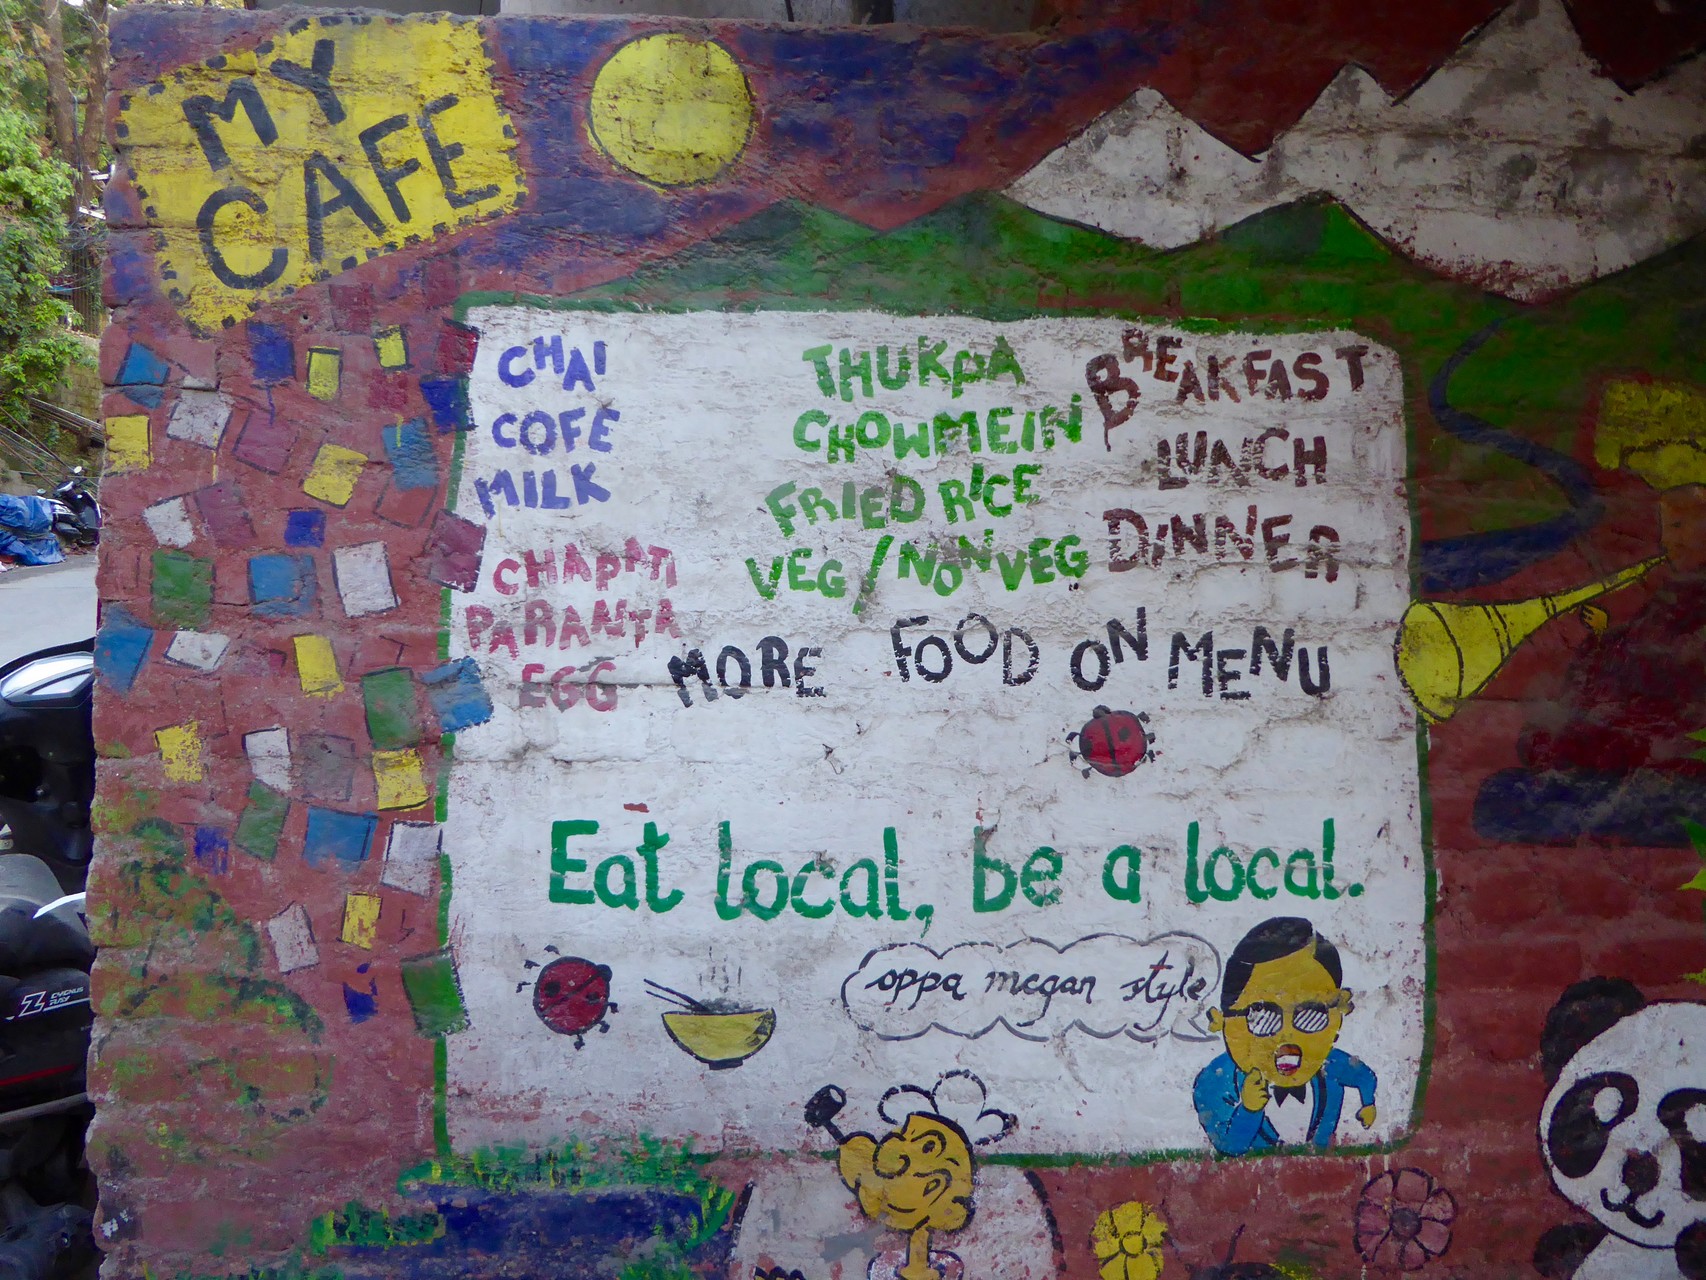 MY
CAFE
CHAI
COFE
MILK
CHAPATI
PARANTA
EGG
THUKPA
CHOWMEIN
FRIED RICE
VEG / NONVEG
BREAKFAST
LUNCH
DINNER
MORE FOOD ON MENU
Eat local, be a local.
oppa megan style
Z EVEREUS